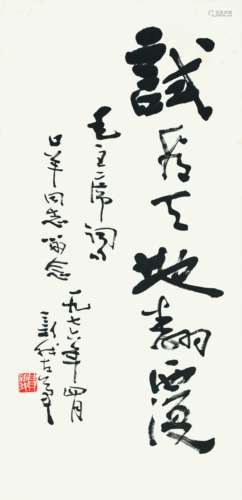 試看天地翻覆
毛主席詞
同志留念
一九七六年四月